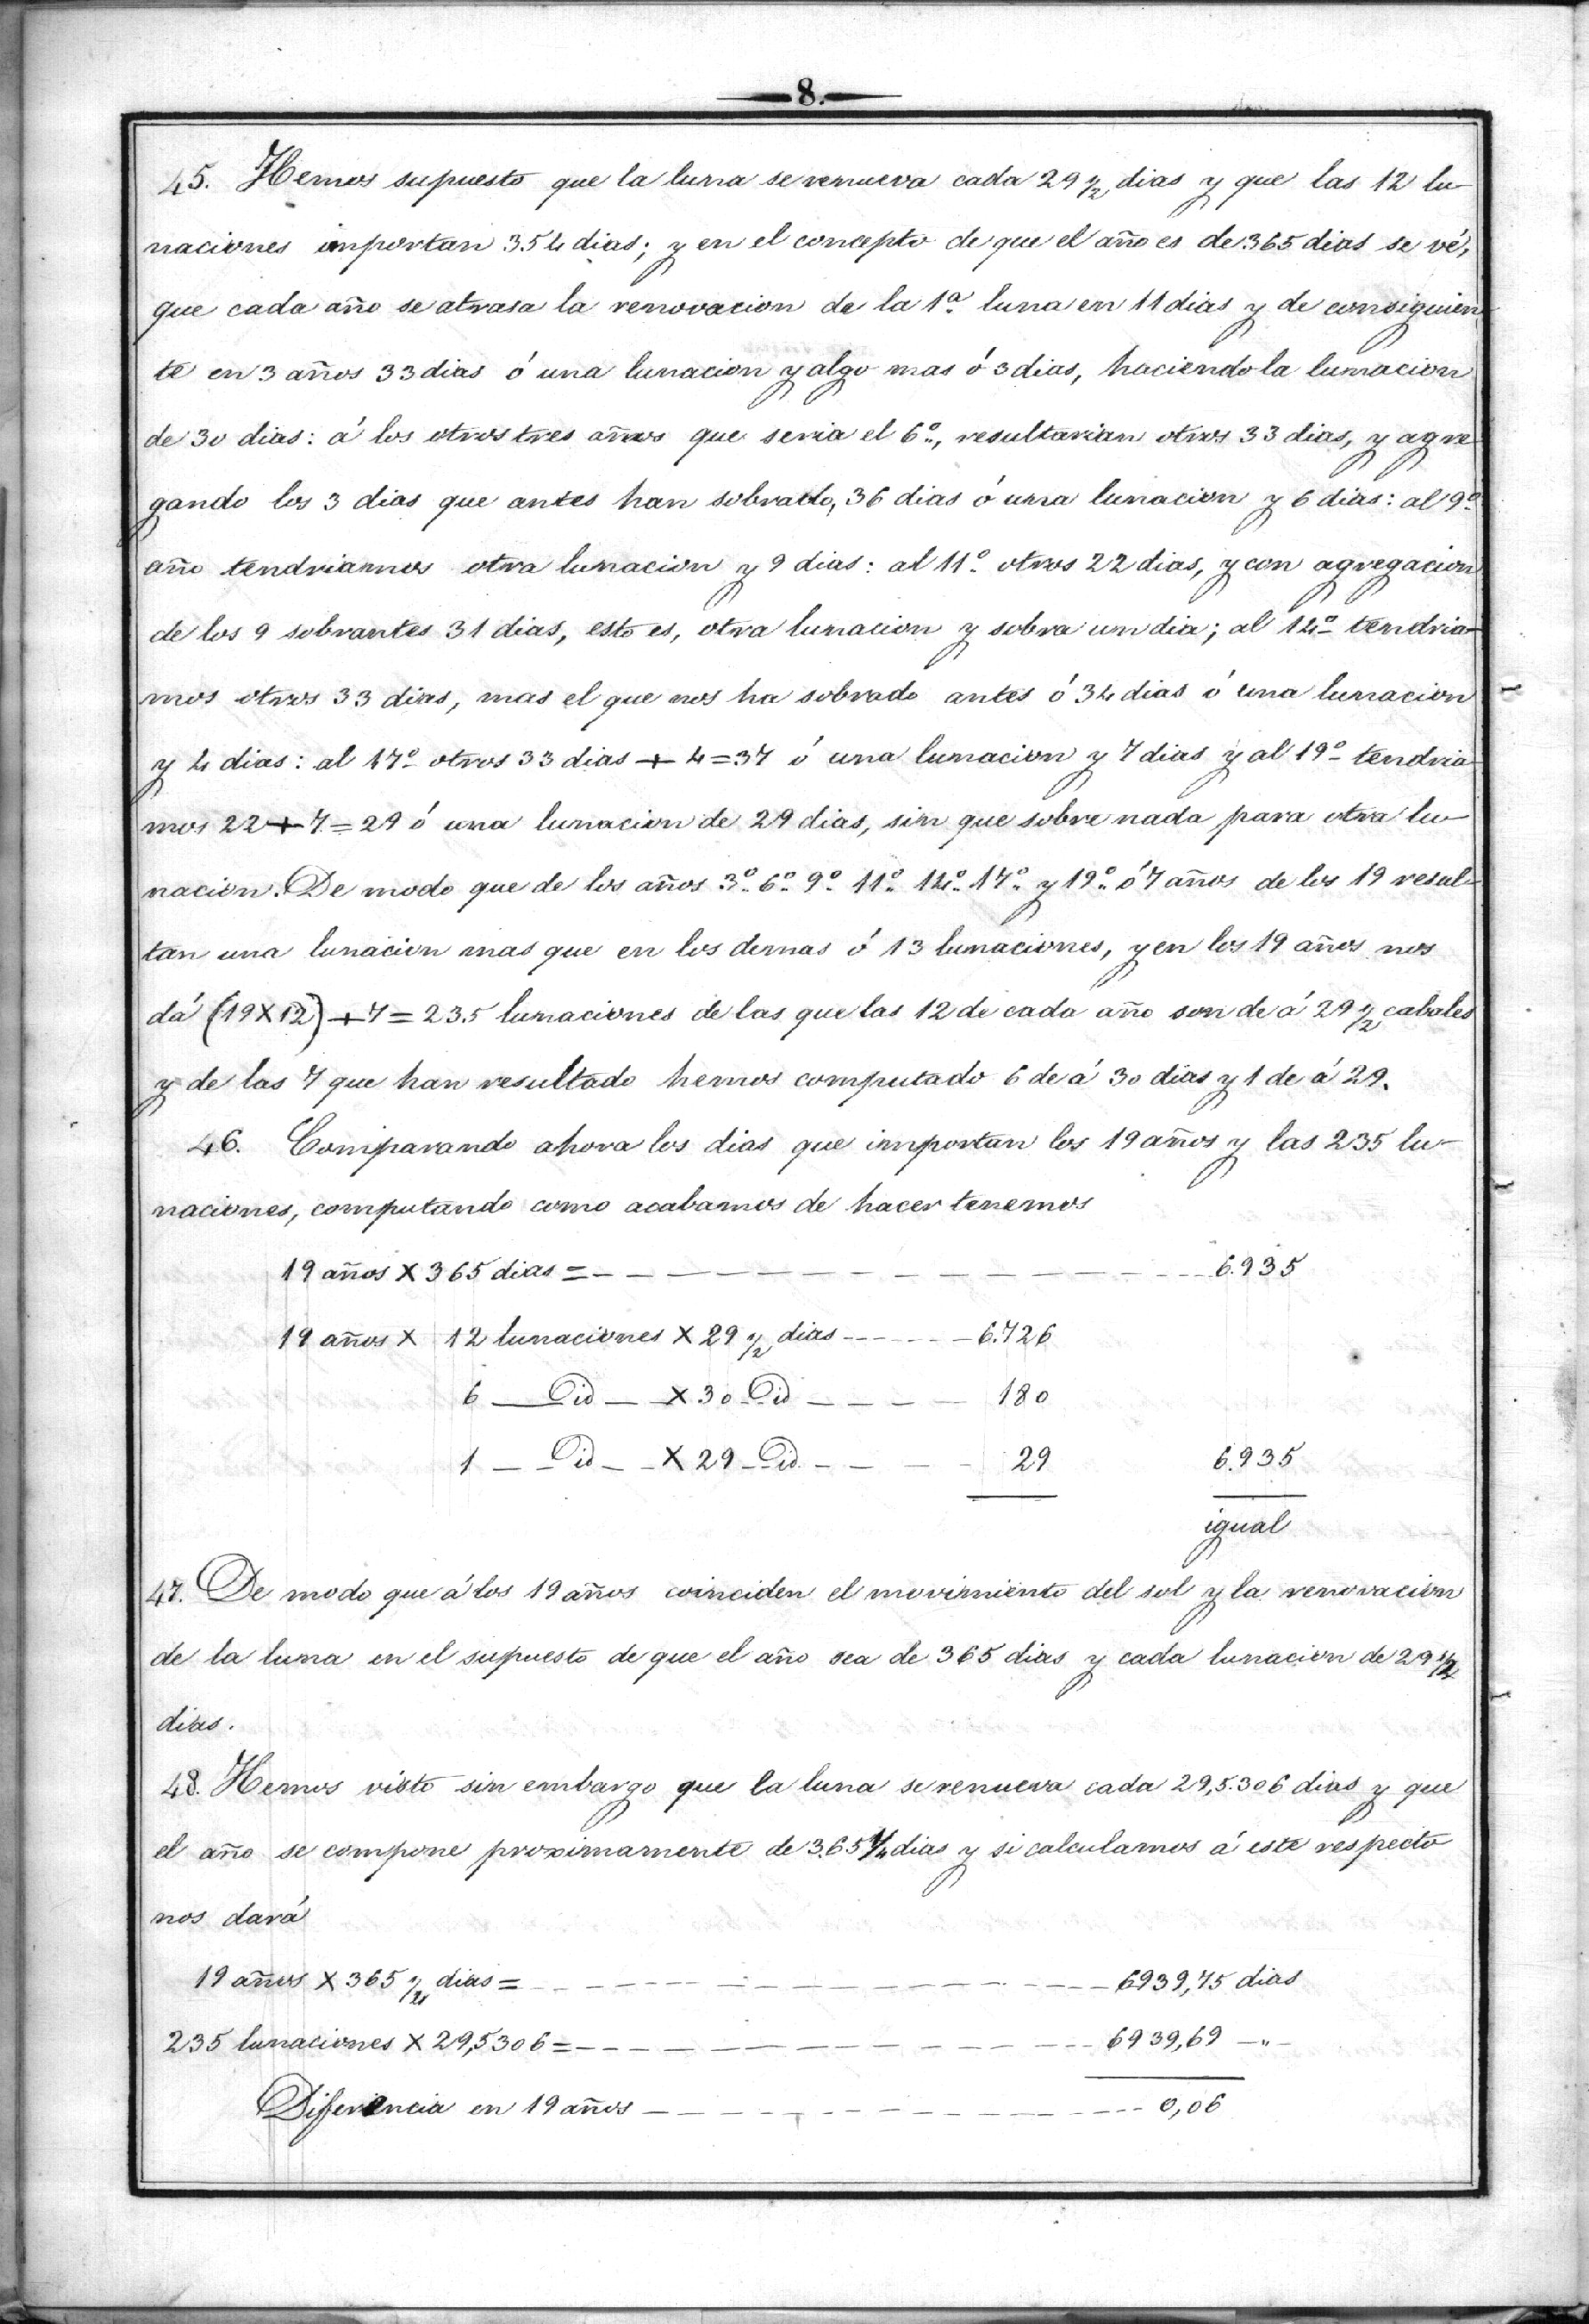 8.
45. Hemos supuesto que la luna se renueva cada 29 1/2 dias y que las 12 lu-
naciones importan 354 dias; y en el concepto de que el año es de 365 dias se vé,
que cada año se atrasa la renovacion de la 1ª luna en 11 dias y de consiguien
te en 3 años 33 dias ó una lunacion y algo mas ó 3 dias, haciendo la lunacion
de 30 dias: á los otros tres años que seria el 6º, resultarian otros 33 dias, y agre
gando los 3 dias que antes han sobrado, 36 dias ó una lunacion y 6 dias: al 9º
año tendriamos otra lunacion y 9 dias: al 11º otros 22 dias, y con agregacion
de los 9 sobrantes 31 dias, esto es, otra lunacion y sobra un dia; al 14º tendria-
mos otros 33 dias, mas el que nos ha sobrado antes ó 34 dias ó una lunacion
y 4 dias: al 17º otros 33 dias + 4 = 37 ó una lunacion y 7 dias y al 19º tendria
mos 22 + 7 = 29 ó una lunacion de 29 dias, sin que sobre nada para otra lu-
nacion. De modo que de los años 3º 6º 9º 11º 14º 17º y 19º ó 7 años de los 19 resul-
tan una lunacion mas que en los demas ó 13 lunaciones, y en los 19 años nos
dá (19 X 12) + 7 = 235 lunaciones de las que las 12 de cada año son de á 29 1/2 cabales
y de las 7 que han resultado hemos computado 6 de á 30 dias y 1 de á 29.
46. Comparando ahora los dias que importan los 19 años y las 235 lu-
naciones, computando como acabamos de hacer tenemos
19 años X 365 dias = 6.935
19 años X 12 lunaciones X 29 1/2 dias 6.726
6 Id X 30 Id 180
1 Id X 29 Id 29 6.935
igual
47. De modo que á los 19 años coinciden el movimiento del sol y la renovacion
de la luna en el supuesto de que el año sea de 365 dias y cada lunacion de 29 1/2
dias.
48. Hemos visto sin embargo que la luna se renueva cada 29,5.306 dias y que
el año se compone proximamente de 365 1/4 dias y si calculamos á este respecto
nos dará
19 años X 365 1/4 dias = 6939,75 dias
235 lunaciones X 29,5306 = 6939,69 — " —
Diferencia en 19 años 0,06